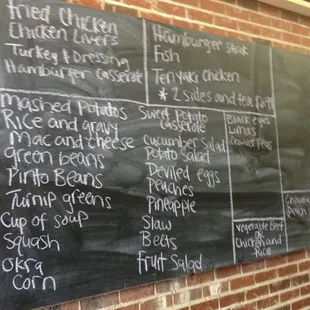 fried Chicken
Chicken Livers
Turkey & Dressing
Hamburger Casserole
Hamburger steak
Fish
Teriyaki Chicken
* 2 sides and tea for
mashed Potatos
Rice and gravy
Mac and cheese
Green beans
Pinto Beans
Turnip greens
Cup of soup
Squash
Okra
Corn
Sweet Potato
Casserole
Cucumber Salad
Potato Salad
Deviled eggs
Peaches
Pineapple
Slaw
Beets
Fruit Salad
Black eyes
Limas
Crowder Peas
Vegetable Beef
or
Chicken and
Rice
Peach